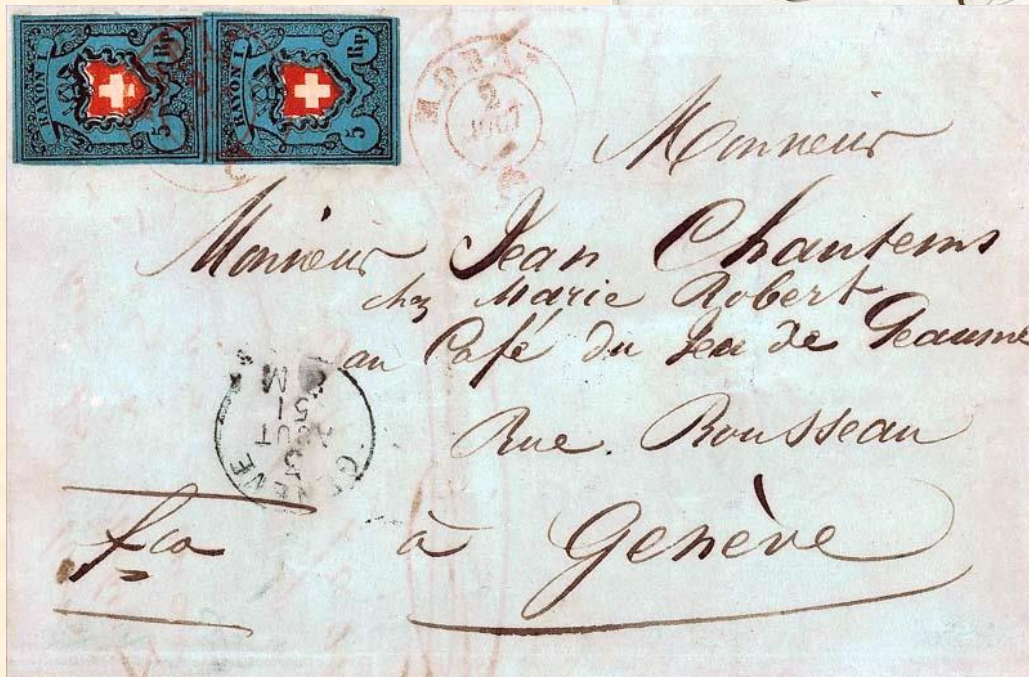 RAYON I. 5 Rp.
RAYON I. 5 Rp.
MORAT
2
AOUT
Monsieur
Monsieur Jean Chantems
chez Marie Robert
au Café du Jeu de Peaume
Rue. Rousseau
GENEVE
3
AOUT
51
M
fco à Genève